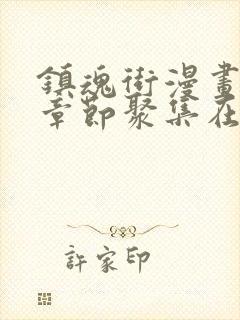 鎮魂街漫畫
章節聚集在
許家印